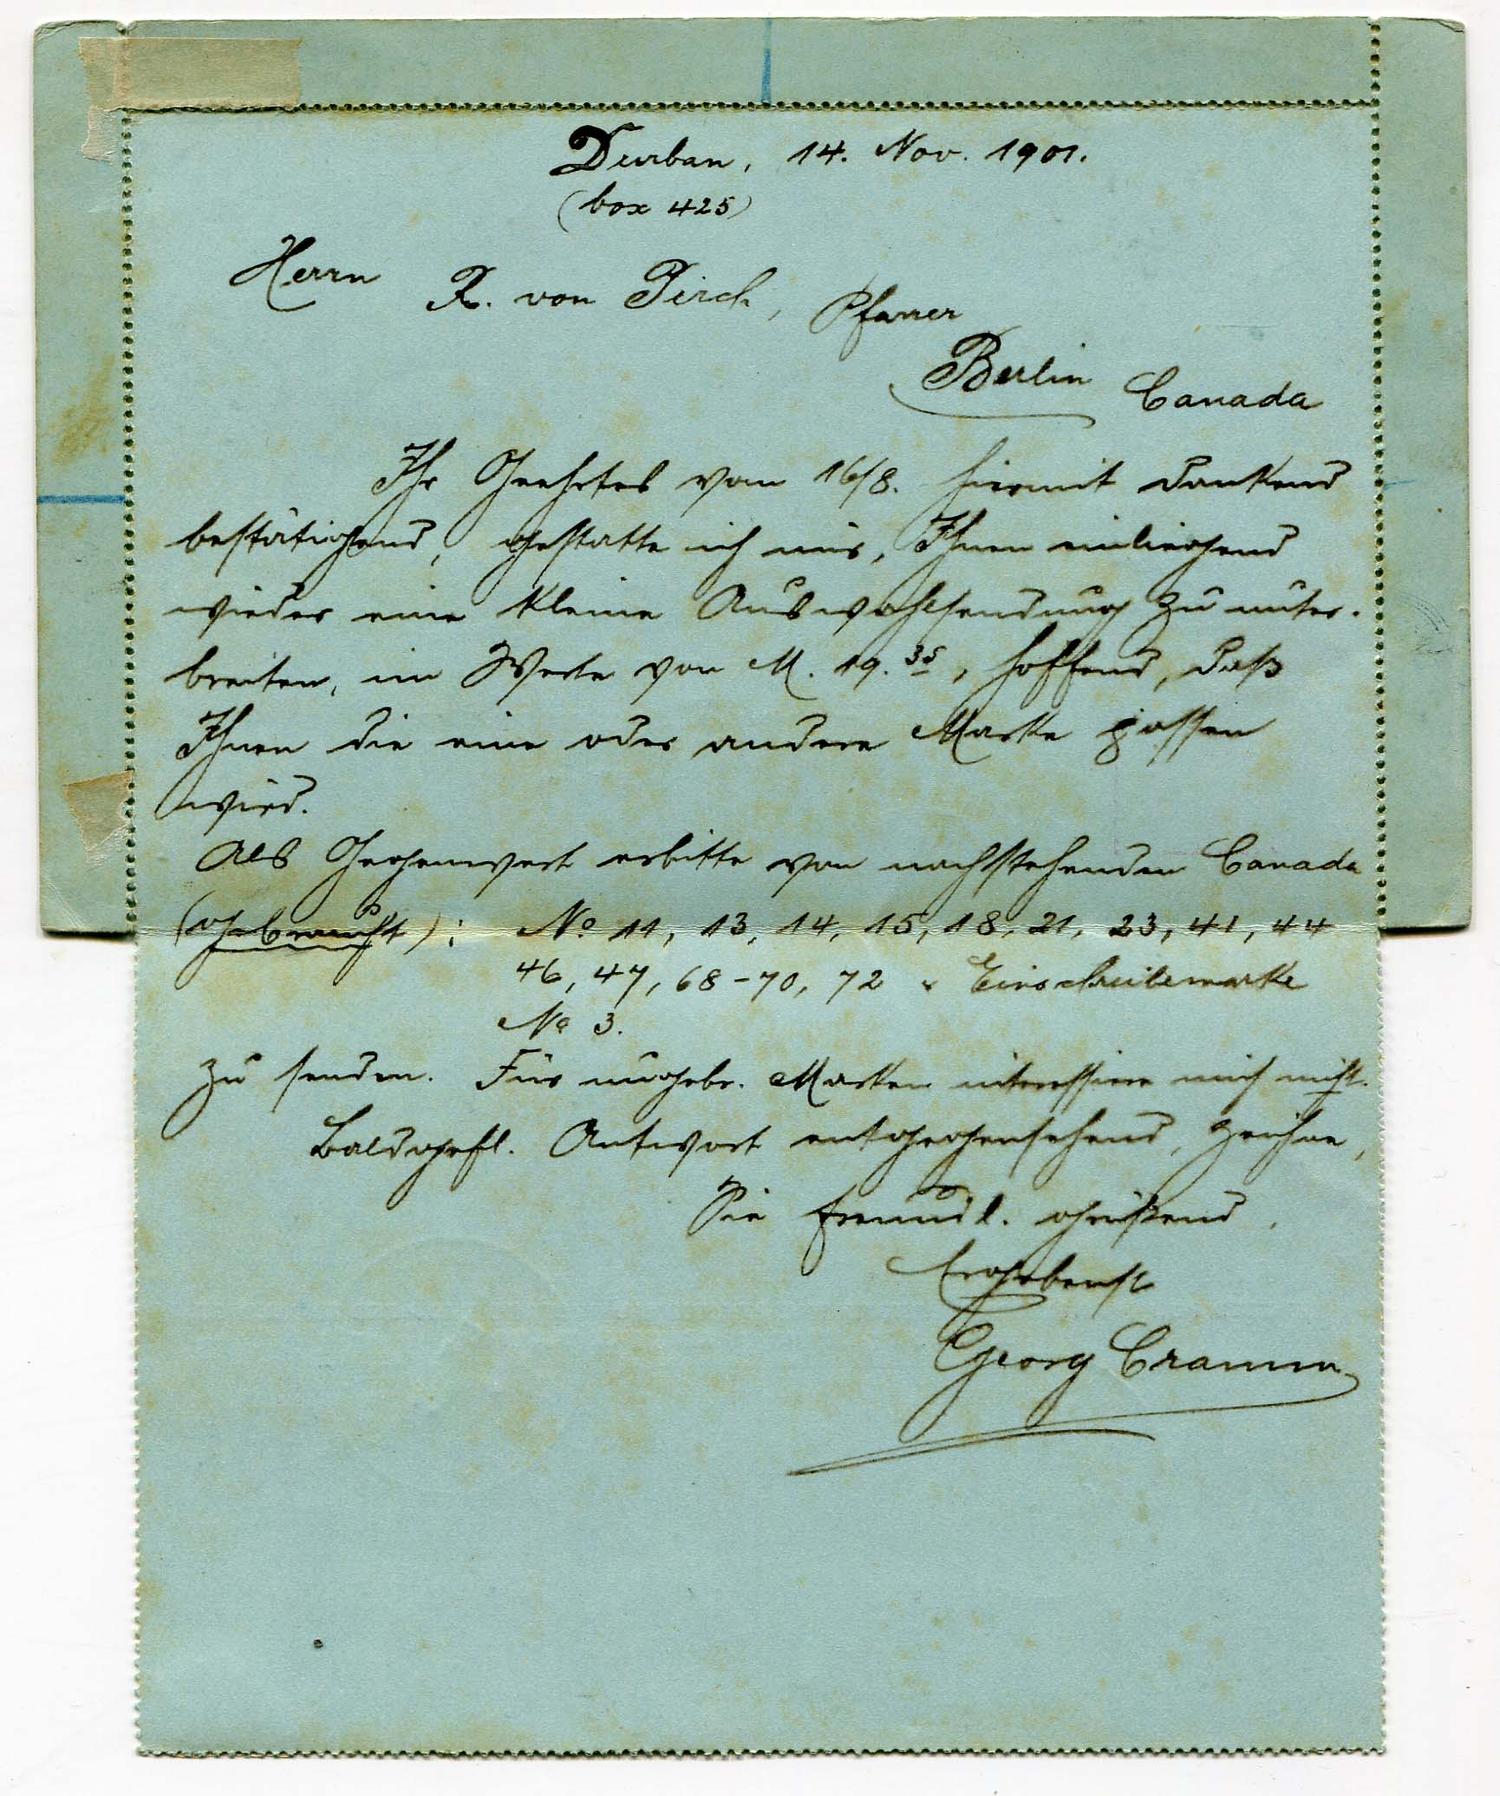 Durban, 14. Nov. 1901.
(box 425)
Herrn R. von Pirch, Pfarrer
Berlin Canada
Ihr Geehrtes vom 16/8. hiermit dankend
bestätigend, gestatte ich mir, Ihnen einliegend
wieder eine kleine Auswahlsendung zu unter-
breiten, im Werte von M. 19.35, hoffend, daß
Ihnen die eine oder andere Marke passen
wird.
Als Gegenwert erbitte von nachstehenden Canada
(gebraucht): No 11, 13, 14, 15, 18, 21, 23, 41, 44
46, 47, 68-70, 72 & Einschreibemarke
No 3.
zu senden. Für ungebr. Marken interessiere mich nicht.
Baldgefl. Antwort entgegensehend, zeichne,
Sie freundl. grüßend,
Ergebenst
Georg Cramm